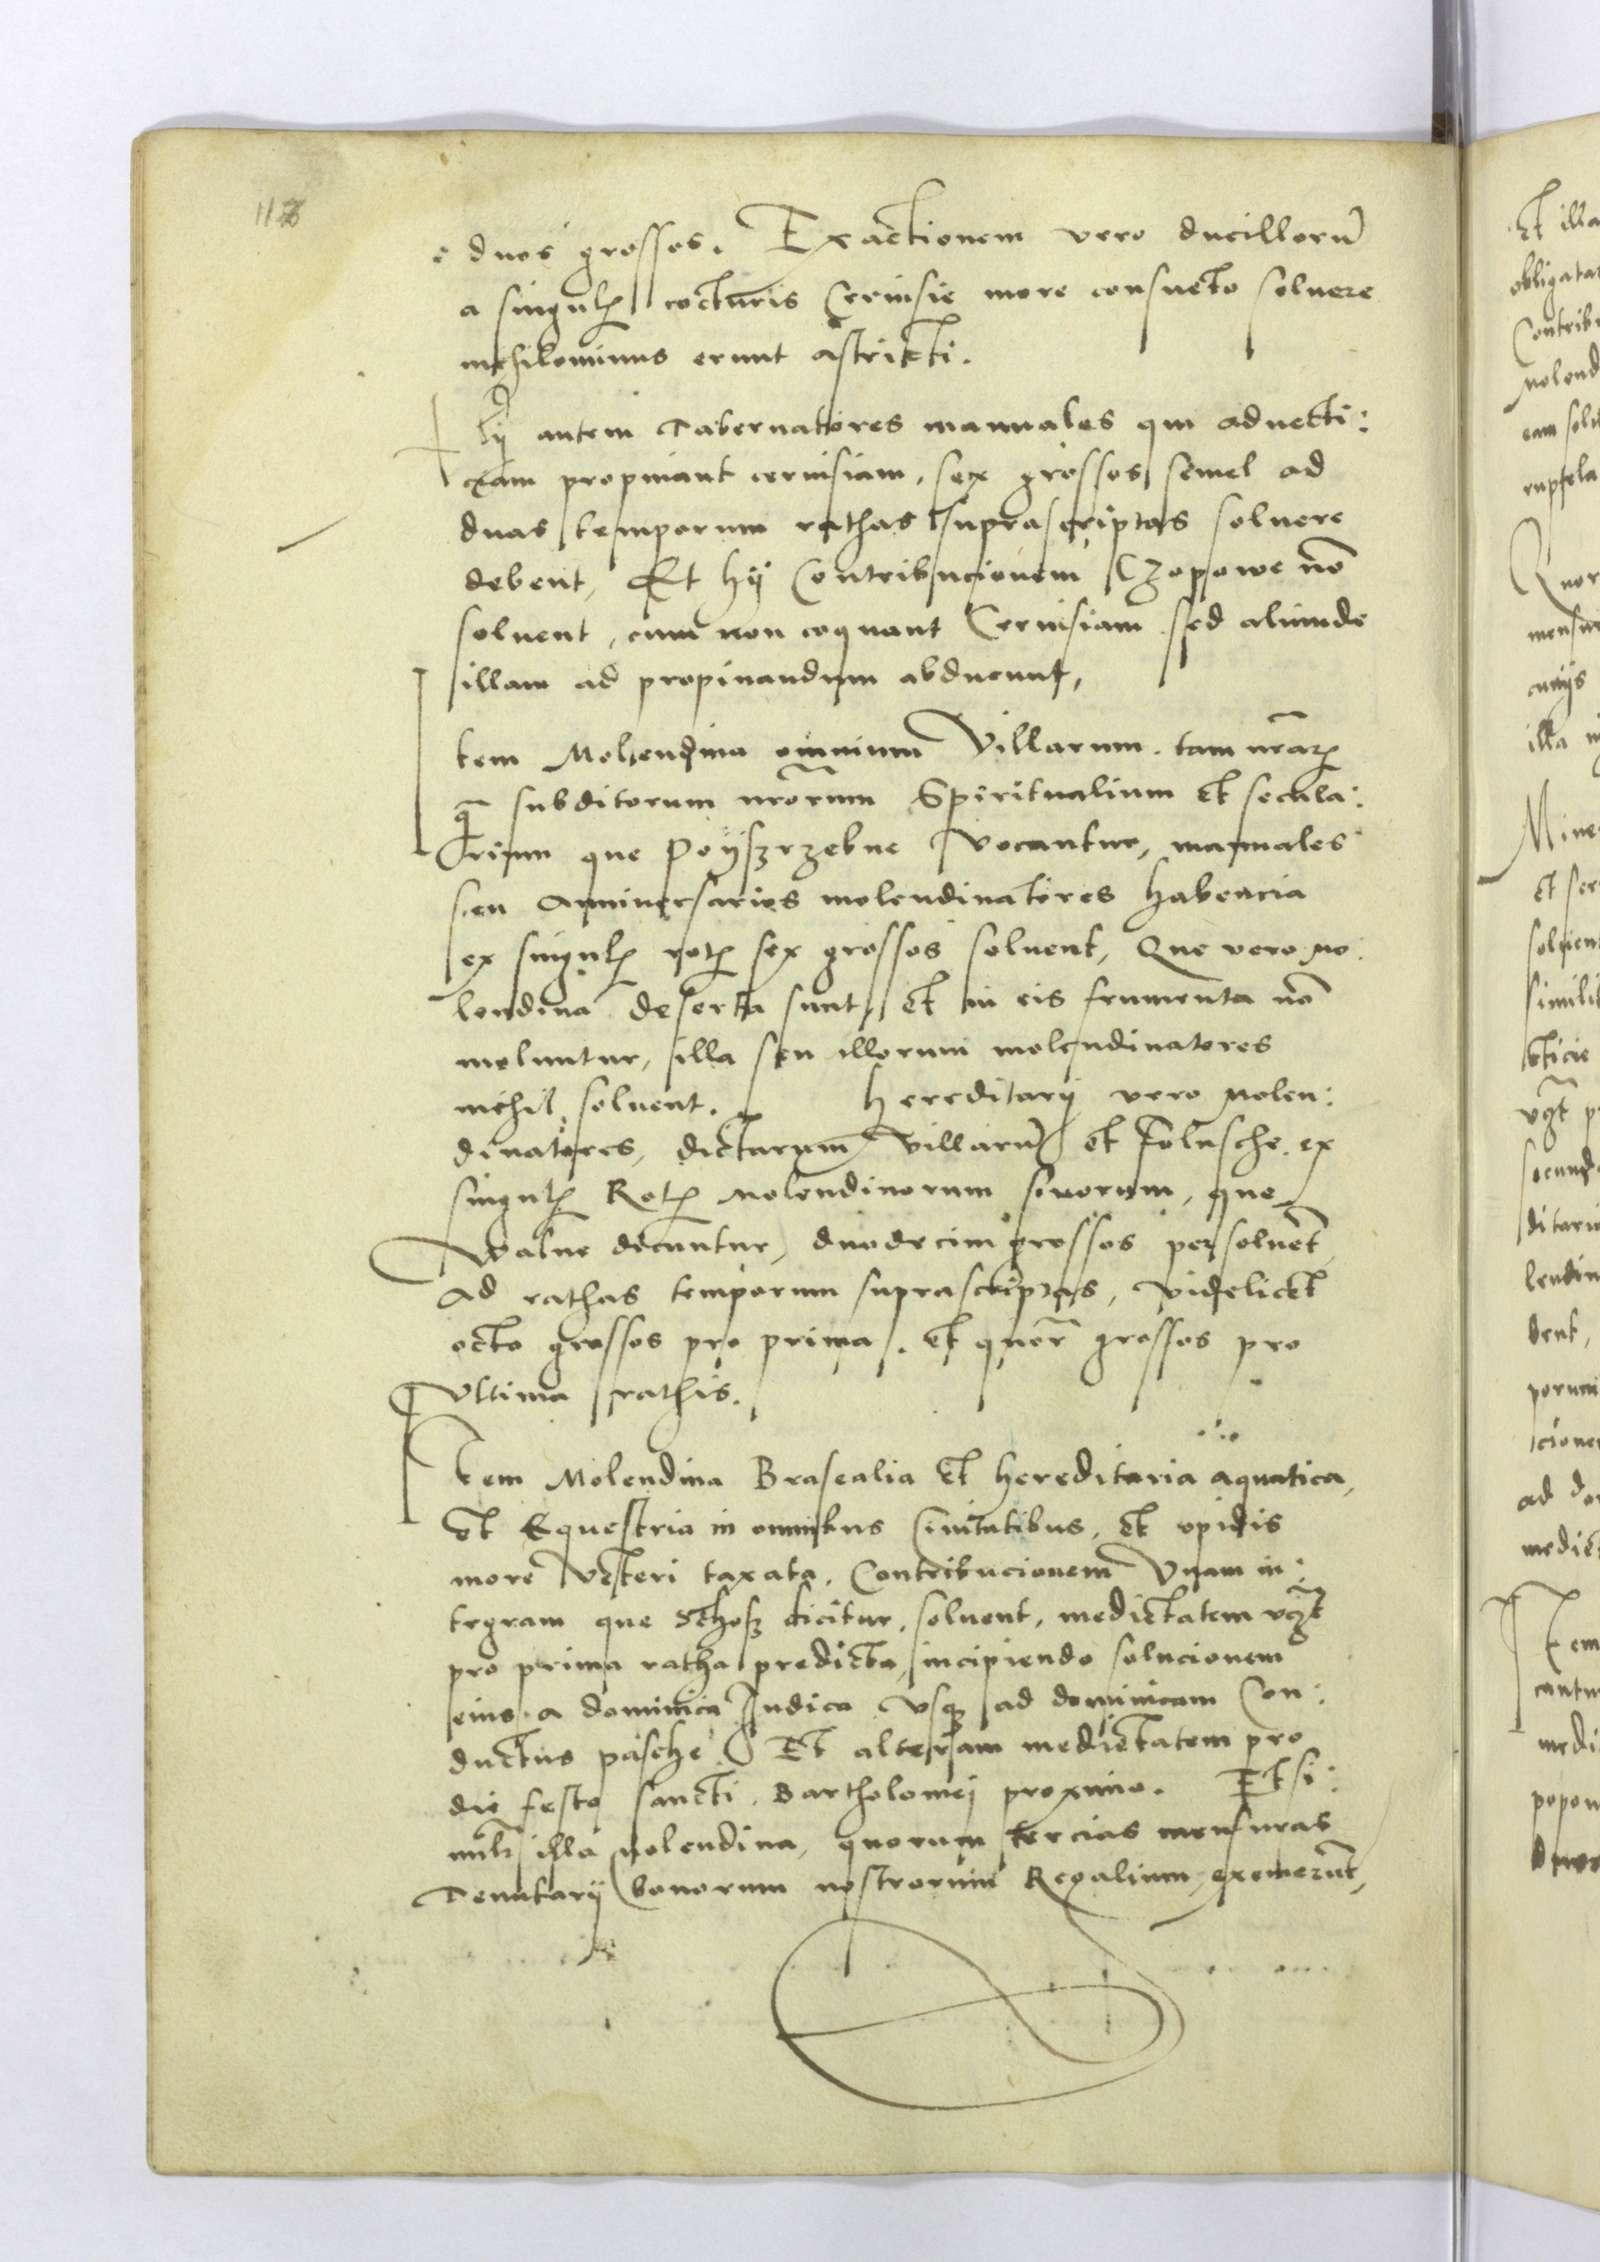 118
duos grossos. Exactionem vero ducillorū
a singul[is] cocturis Cervisie more consueto soluere
nichilominus erunt astrikti.
Hij autem Tabernatores manuales qui aduecti:
ciam propinant cervisiam, sex grossos semel ad
duas temporum rathas suprascriptas soluere
debent, Et hij Contribucionem Czopowe nō
soluent, cum non coquant Cervisiam sed aliunde
illam ad propinandum abducunt,
Item Molendina omnium Villarum. tam nrāꝝ
q̄ subditorum nrōrum Spiritualium et secula:
rium que Poyszrzebne vocantur, manuales
seu Anniversarios molendinatores habencia
ex singulꝭ rotꝭ sex grossos soluent, Que vero mo
lendina deserta sunt, et in eis frumenta nō
moluntur, illa seu illorum molendinatores
nichil soluent. hereditarij vero molen:
dinatores, dictarum villarū et Folusche. ex
singulꝭ Rotꝭ molendinorum suorum, que
walne dicuntur, duodecim grossos persoluēt
Ad rathas temporum suprascriptas, videlicet
octo grossos pro prima. et quor̄ grossos pro
Vltima rathis.
Item Molendina Brasealia et hereditaria aquatica,
et Equestria in omnibus Civitatibus, et opidis
more veteri taxata, Contribucionem Vnam in:
tegram que Schosz dicitur, soluent, medietatem vcꝫt
pro prima ratha predicta, incipiendo solucionem
eius a dominica Iudica vsqꝫ ad dominicam Con:
ductus pasche. Et alteram medietatem pro
die festo sancti Bartholomej proximo. Et si:
mlꝫ illa molendina, quorum tercias mensuras
Tenutarij bonorum nostrorum Regalium exemerūt,
et illa
obligata
Contrib
molend
eam
mensur
illa
Mine
et
simili
vcꝫt
ditari
lendin
dent,
porum
ad
mediet
Item
medi